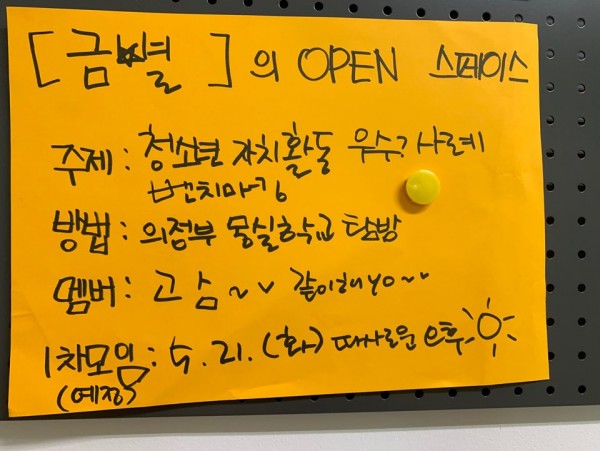 [금별]의 OPEN 스페이스
주제 : 청소년 자치활동 우수사례
벤치마킹
방법 : 의정부 몽실학교 탐방
멤버 : 고삼~~ 같이해요~~
1차모임 : 5.21.(화) 따사로운 오후
(예정)